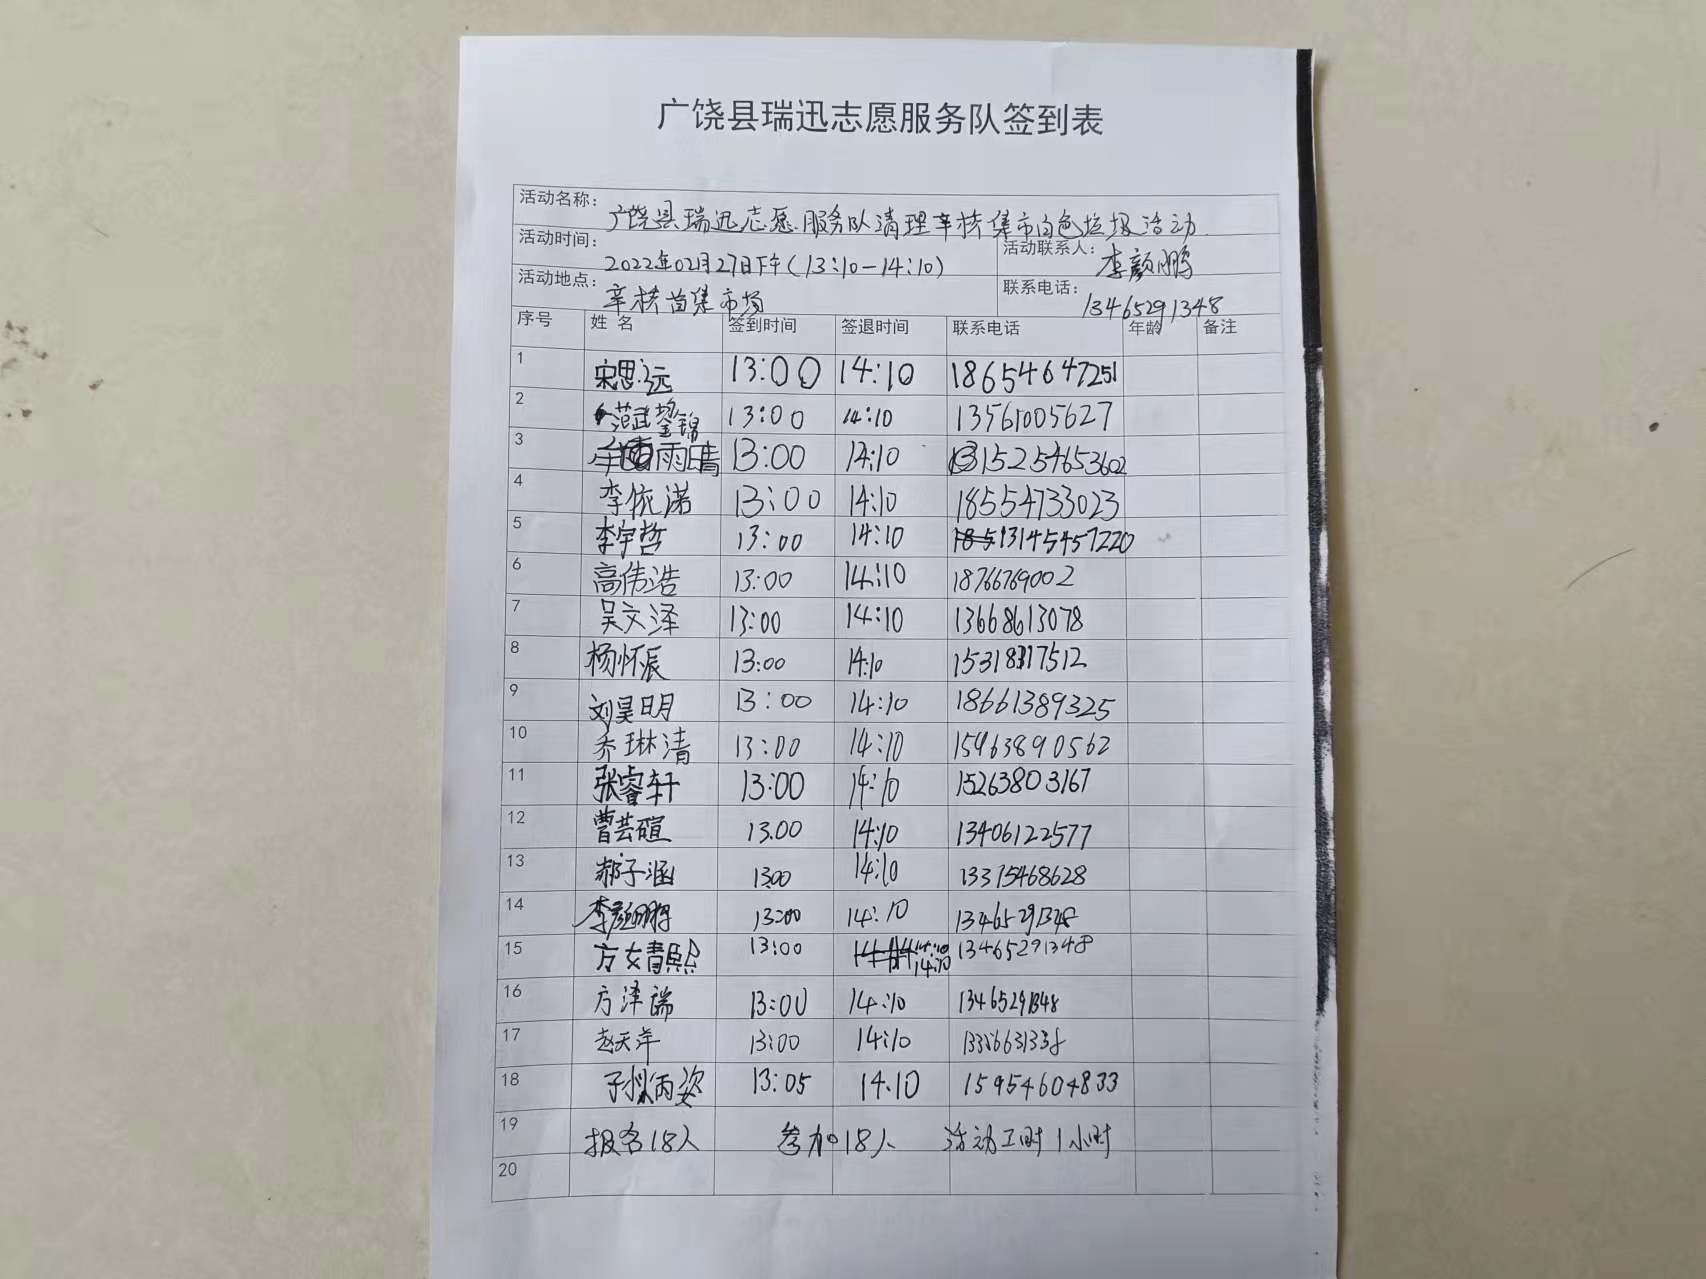 广饶县瑞迅志愿服务队签到表
活动名称: 广饶县瑞迅志愿服务队清理辛桥集市白色垃圾活动
活动时间: 2022年02月27日下午(13:10-14:10) 活动联系人: 李颜鹏
活动地点: 辛桥苗集市场 联系电话: 13465291348
序号 姓名 签到时间 签退时间 联系电话 年龄 备注
1 宋思远 13:00 14:10 18654647251
2 范武鋆锦 13:00 14:10 13561005627
3 雨晴 13:00 14:10 15254653602
4 李依诺 13:00 14:10 18554733023
5 李宇哲 13:00 14:10 13145457220
6 高伟浩 13:00 14:10 18766769002
7 吴文泽 13:00 14:10 13668613078
8 杨怀辰 13:00 14:10 15318317512
9 刘昊明 13:00 14:10 18661389325
10 乔琳清 13:00 14:10 15963890562
11 张睿轩 13:00 14:10 15263803167
12 曹芸碹 13.00 14:10 13406122577
13 郝子涵 13:00 14:10 13375468628
14 李颜鹏 13:00 14:10 13465291348
15 方女青熙 13:00 14:10 13465291348
16 方泽瑞 13:00 14:10 13465291348
17 赵天洋 13:00 14:10
18 丙姿 13:05 14.10 15954604833
19 报名18人 参加18人 活动工时1小时
20